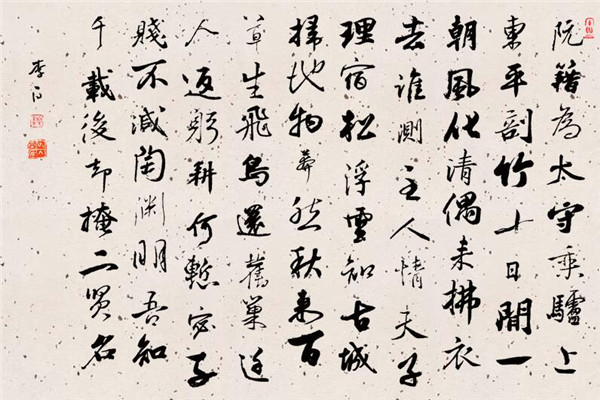 阮籍為太守乘驢上
東平剖竹十日間一
朝風化清偶来拂衣
去誰測主人情夫子
理宿松浮雲知古城
掃地物莽然秋来百
草生飛鳥還舊巢迁
人返躬耕何慙宓子
賤不減陶渊明吾知
千載後却掩二贤名
李